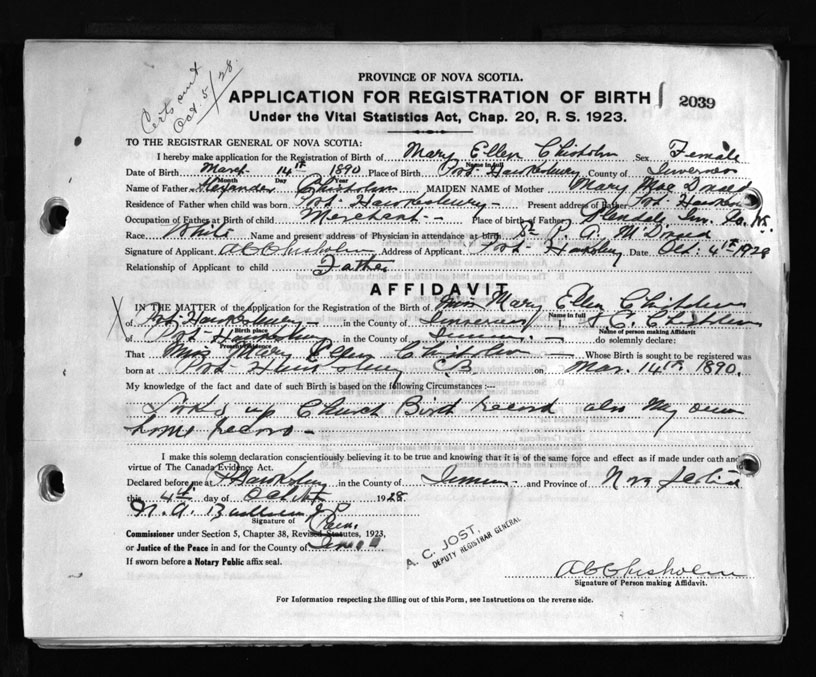 Certs out
Oct. 5/28.
PROVINCE OF NOVA SCOTIA.
APPLICATION FOR REGISTRATION OF BIRTH 2039
Under the Vital Statistics Act, Chap. 20, R. S. 1923.
TO THE REGISTRAR GENERAL OF NOVA SCOTIA:
I hereby make application for the Registration of Birth of Mary Ellen Chisholm Sex Female
Name in full
Date of Birth March 14th 1890 Place of Birth Port Hawkesbury County of Inverness
Month Day Year
Name of Father Alexander Chisholm MAIDEN NAME of Mother Mary Mac Donald
Residence of Father when child was born Port Hawkesbury Present address of Father Port Hawkes
Occupation of Father at Birth of child Merchant Place of birth of Father Glendale Inv. Co. NS.
Race White Name and present address of Physician in attendance at birth Dr P. A. McDonald
Signature of Applicant A C Chisholm Address of Applicant Port Hawkesbury Date Oct. 4th 1928
Relationship of Applicant to child Father
AFFIDAVIT
IN THE MATTER of the Application for the Registration of the Birth of Miss Mary Ellen Chisholm
Name in full
of Port Hawkesbury in the County of Inverness I A. C. Chisholm
Birth place Name of person making Affidavit
of Port Hawkesbury in the County of Inverness do solemnly declare:
Present residence
That Miss Mary Ellen Chisholm Whose Birth is sought to be registered was
born at Port Hawkesbury C.B. on Mar. 14th 1890.
My knowledge of the fact and date of such Birth is based on the following Circumstances :—
Looked up Church Birth record also My own
home record
I make this solemn declaration conscientiously believing it to be true and knowing that it is of the same force and effect as if made under oath and
virtue of The Canada Evidence Act.
Declared before me at P. Hawkesbury in the County of Inverness and Province of Nova Scotia
this 4th day of October 1928
N. A. J P
Signature of
Commissioner under Section 5, Chapter 38, Revised Statutes, 1923,
or Justice of the Peace in and for the County of
If sworn before a Notary Public affix seal.
A. C. JOST,
DEPUTY REGISTRAR GENERAL
A C Chisholm
Signature of Person making Affidavit.
For Information respecting the filling out of this Form, see Instructions on the reverse side.